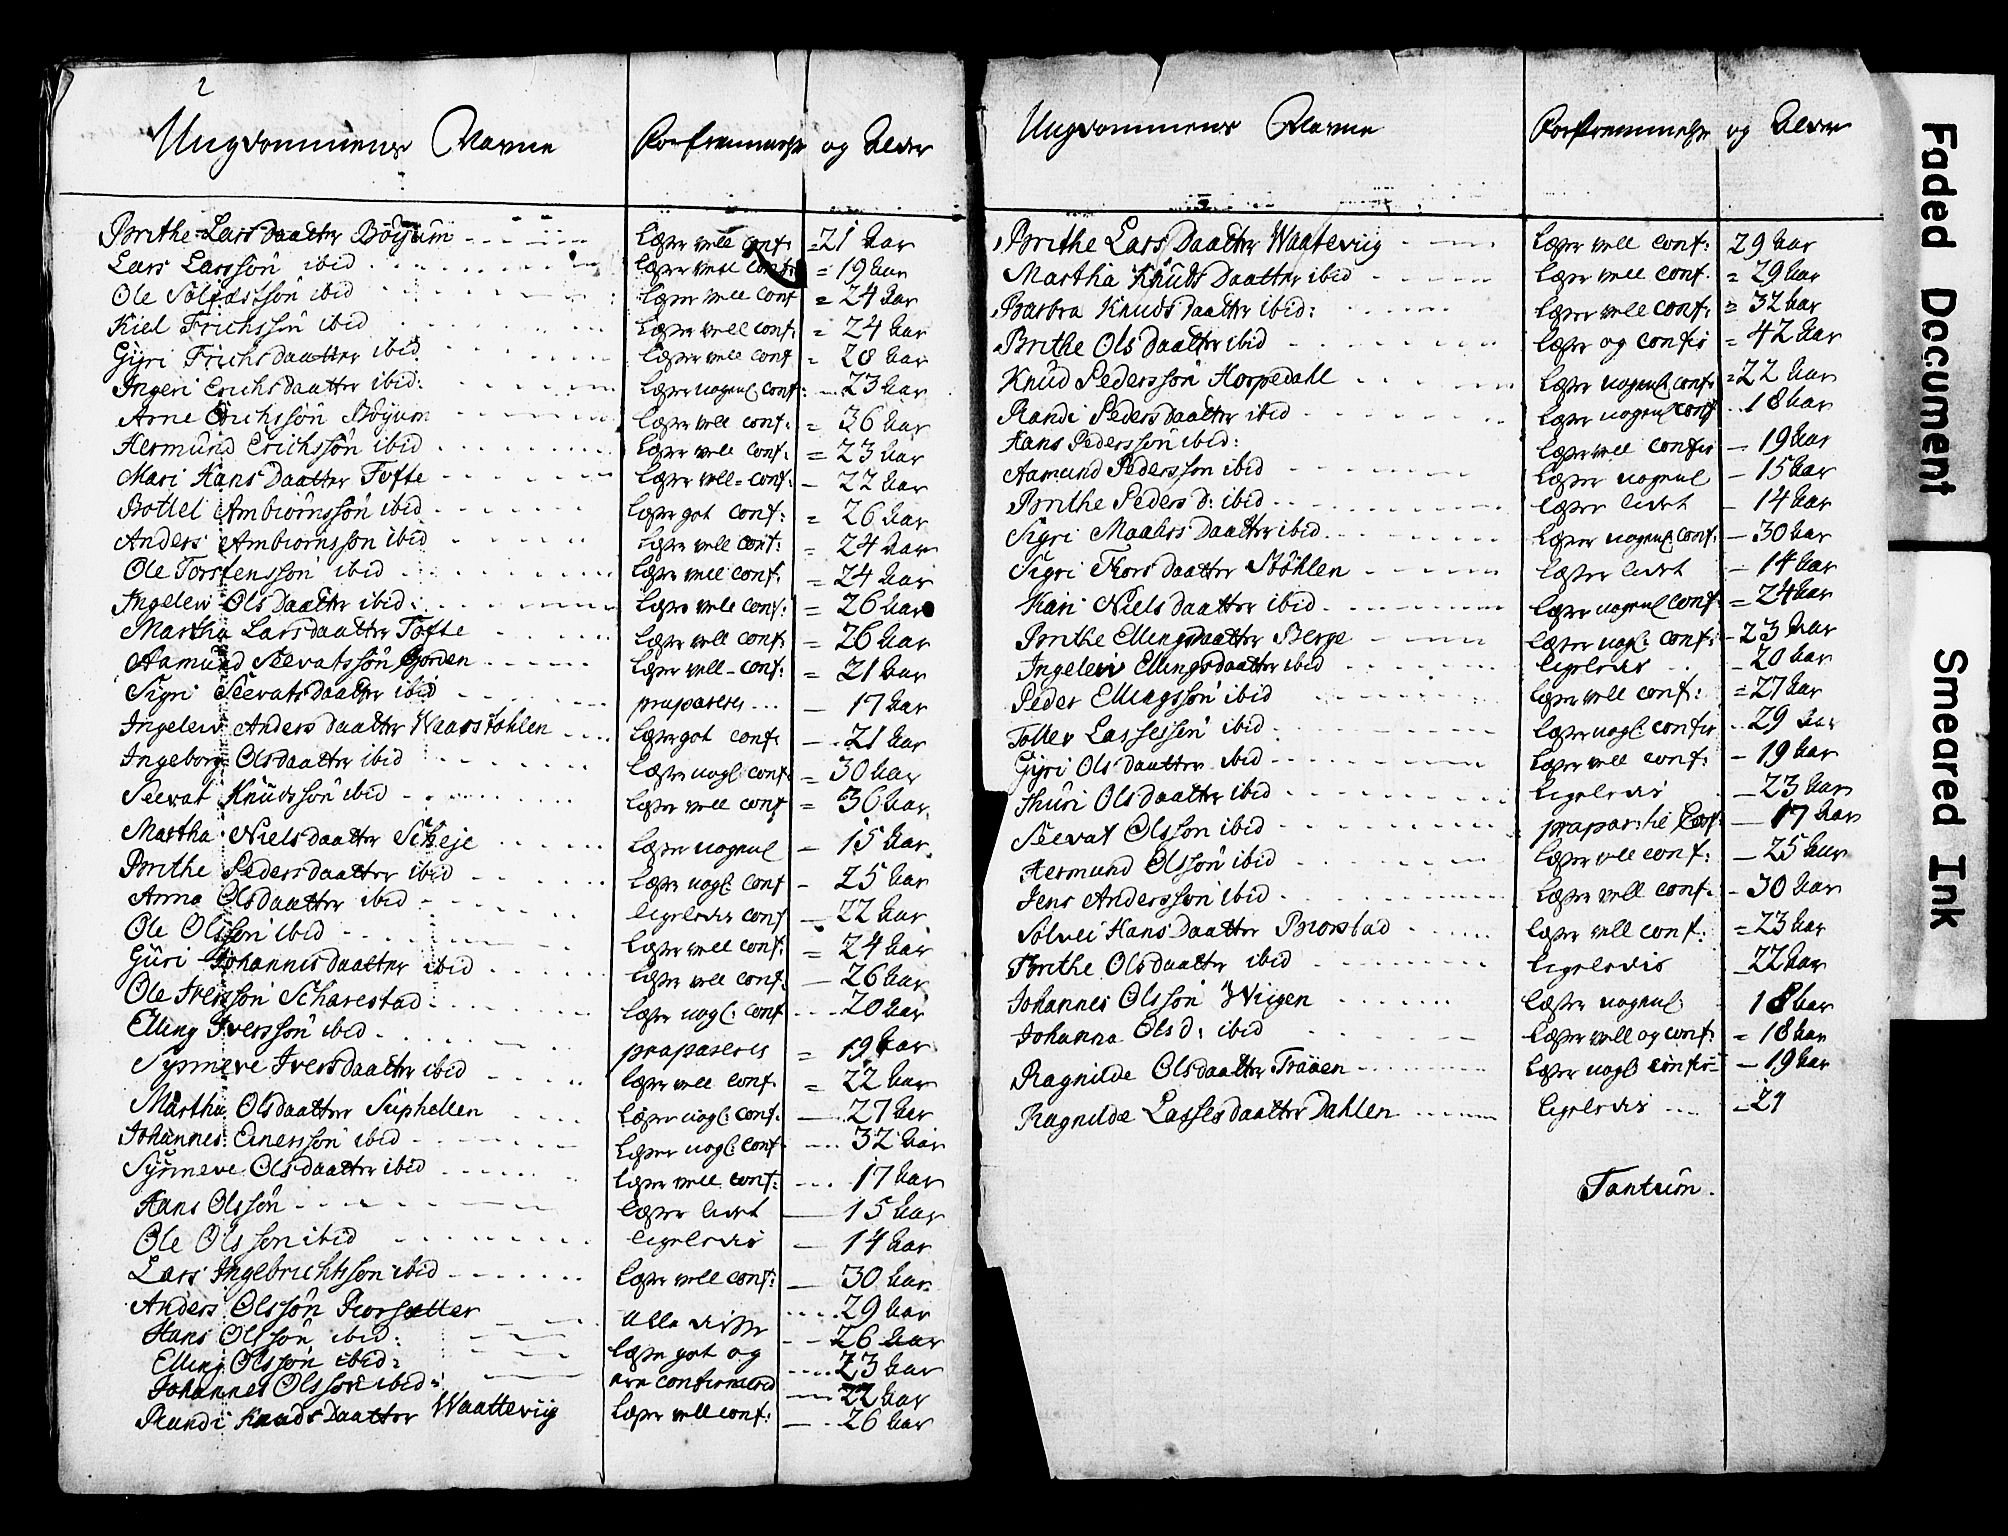 2
Ungdommens Navne Forfremmelse og Alder
Brithe Lars Daatter Böÿum læser vell conf: =21 Aar
Lars Larssön ibid læser vell conf: = 19 Aar
Ole Solfæstsön ibid læser vell conf = 24 Aar
Kiel Erichssön ibid læser vell conf: = 24 Aar
Gÿri Erichsdaatter ibid læser vell conf = 28 Aar
Ingeri Erichsdaatter ibid: læser nogenl conf: 23 Aar
Arne Erichssön Böÿum læser vell conf: = 36 Aar
Hermund Erichssön ibid læser vell conf: = 23 Aar
Mari Hans Daatter Tofte læser vell = conf: – 22 Aar
Bottel Ambiörnssön ibid læser got conf: = 26 Aar
Anders Ambiörnssön ibid læser vell conf: = 24 Aar
Ole Torstenssön ibid læser vell conf: = 24 Aar
Ingelew Ols Daatter ibid: læser vell conf: = 26 Aar
Martha Larsdaatter Tofte læser vell conf: = 26 Aar
Aamund Seevatssön Gjorden læser vell – conf: = 21 Aar
Sigri Seevatsdaatter ibid præpareres – 17 Aar
Ingelew Anders daatter Waarstöhlen læser got conf: – 21 Aar
Ingeborg Olsdaatter ibid læser nogl: conf = 30 Aar
Seevat Knudssön ibid læser vell conf = 36 Aar.
Martha Nielsdaatter Scheje læser nogenl – 15 Aar.
Brithe Pedersdaatter ibid læser nogl: conf – 25 Aar
Anna Olsdaatter ibid ligeledis conf – 22 Aar
Ole Olssön ibid læser vell conf: = 24 Aar
Guri Johannesdaatter ibid læser vell conf: – 26 Aar
Ole Iverssön Scharestad læser nogl: conf 20 Aar
Elling Iverssön ibid præpareres = 19 Aar
Sÿnneve Iversdaatter ibid læser vell conf. = 22 Aar
Martha Olsdaatter Suphellen læser nogl: conf. – 27 Aar
Johannes Einerssön ibid læser nogl: conf. 32 Aar
Sÿnneve Olsdaatter ibid læser vell conf: 17 Aar
Hans Olssön læser lidet – 15 Aar
Ole Olssön ibid ligeledis – 14 Aar
Lars Ingebrichtssön ibid læser vell conf: – 30 Aar
Anders Olssön Horsætter alle disse 29 Aar
Hans Olssön ibid: læse got og 26 Aar
Elling Olssön ibid: 23 Aar
Johannes Olssön ibid: ere confirmered 22 Aar
Randi Knuds Daatter Waattevüg læser vell conf: – 26 Aar
Ungdommens Navne Forfremmelse og Alder
Brithe Lars Daatter Waattevüg læser vell conf: 29 Aar
Martha Knuds Daatter ibid læser vell conf. = 29 Aar
Barbra Knuds daatter ibid: læser vell conf: = 32 Aar
Brithe Ols Daatter ibid læser og confir = 42 Aar
Knud Pederssön Horpedahl læser nogenl conf: =22 Aar
Randi Pedersdaatter ibid læser nogenl conf 18 Aar
Hans Pederssön ibid: læser vell confir – 19 Aar
Aamund Pederssön ibid læser nogenl – 15 Aar
Brithe Peders D: ibid læser lidet – 14 Aar
Sigri Maalfrs Daatter ibid læser nogenl: conf. – 30 Aar
Sigri Thors Daatter Stöhlen læser lidet – 14 Aar
Kari Niels daatter ibid læser nogenl conf = 24 Aar
Brithe Ellingsdaatter Berge læser nogl: conf: – 23 Aar
Ingelew Ellingsdaatter ibid ligeledis – 20 Aar
Peder Ellingssön ibid læser vell conf: = 27 Aar
Tollev Lassessön ibid læser nogl: confir – 29 Aar
Gÿri Ols daatter ibid læser vell conf: – 19 Aar
Thuri Olsdaatter ibid ligeledis – 23 Aar
Seevat Olsson ibid – 17 Aar
Hermund Olssön ibid læser vell conf: – 25 Aar
Jens Anderssön ibid læser vell conf. – 30 Aar
Solvei Hans Daatter Brorstad læser vell conf: = 23 Aar
Brithe Olsdaatter ibid ligeledis 22 Aar
Johannes Olssön Wiigen læser nogenl: 18 Aar
Johanna Ols D: ibid læser vell og conf: = 18 Aar
Ragnilde Olsdaatter Tröaen læser nogl confir= – 19 Aar
Ragnilde Lassesdaatter Dahlen ligeledis = 27
Tantum.
Faded Document
Smeared Ink